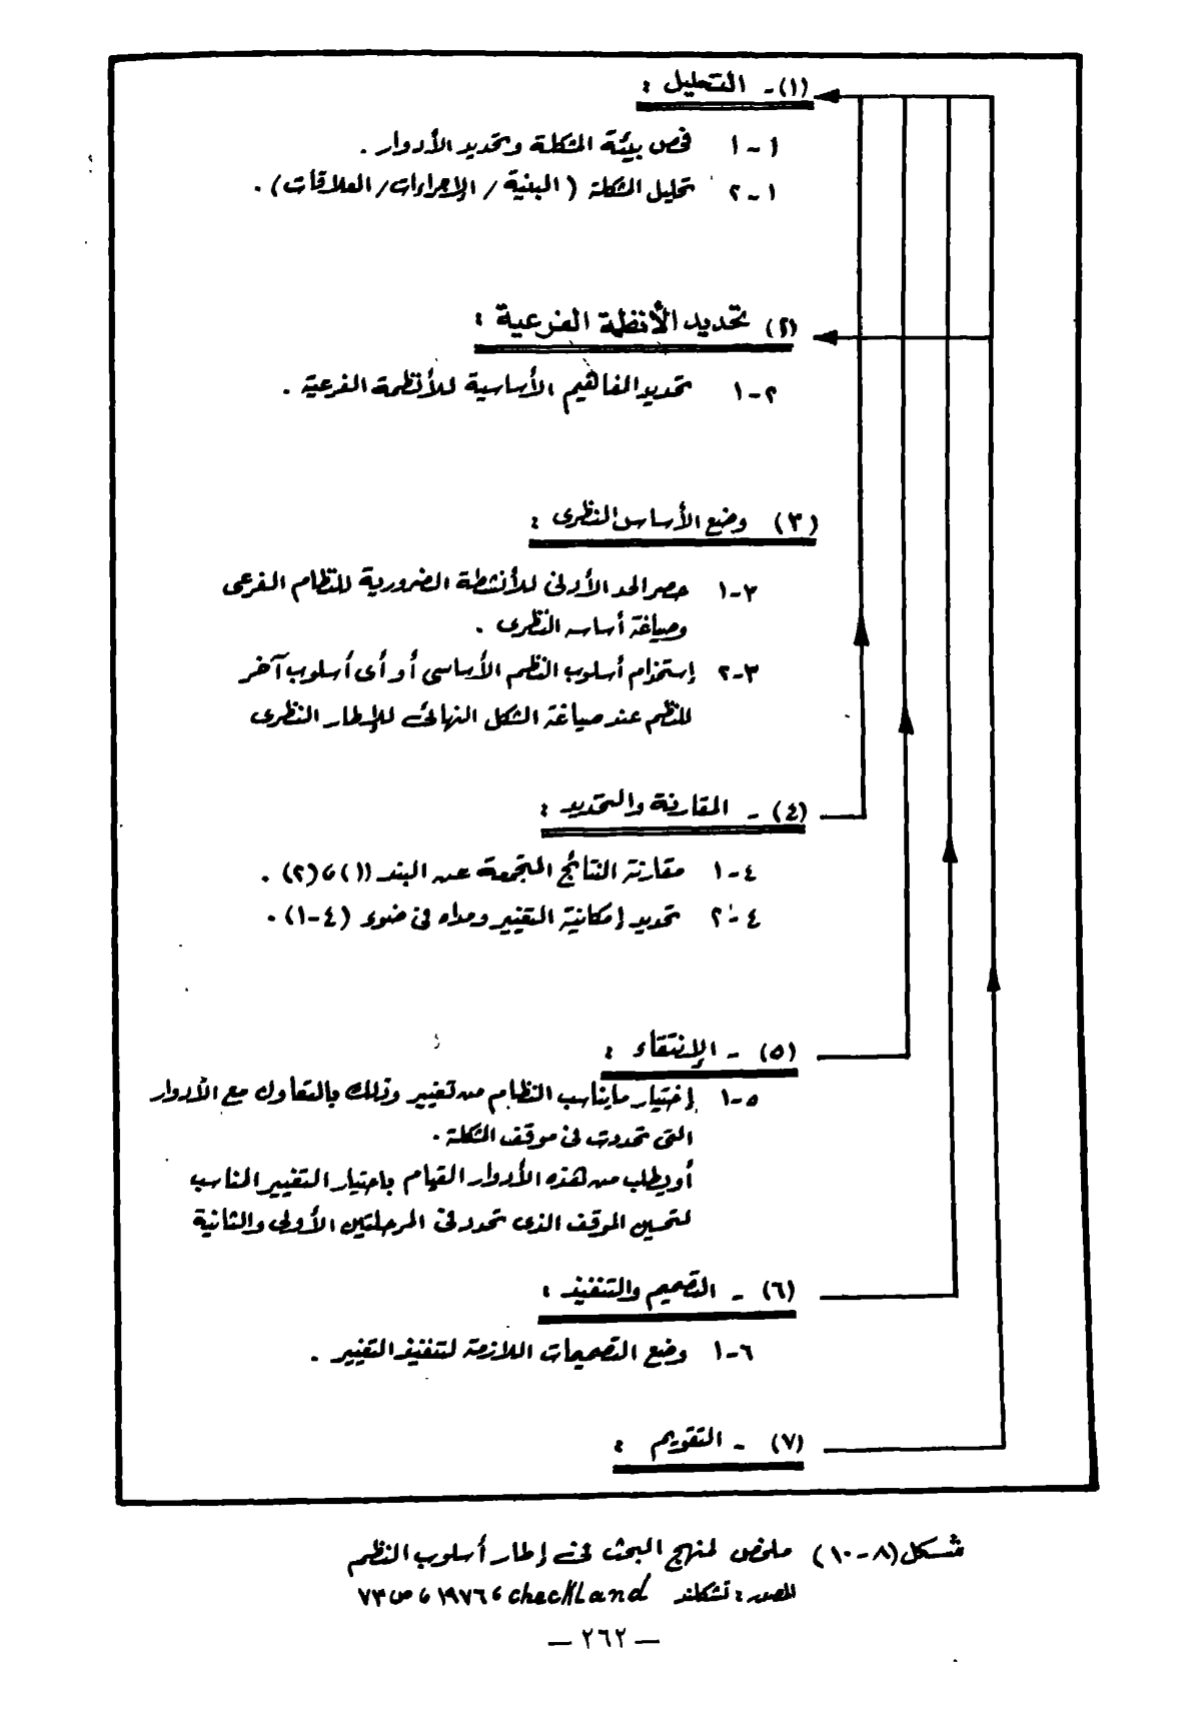 (١)- التحليل :
١-١ فحص بيئة المشكلة وتحديد الأدوار .
١-٢ تحليل المشكلة (البنية / الإجراءات / العلاقات) .
(٢) تحديد الأنظمة الفرعية :
٢-١ تحديد المفاهيم الأساسية للأنظمة الفرعية .
(٣) وضع الأساس النظرى :
٣-١ حصر الحد الأدنى للأنشطة الضرورية للنظام الفرعى
وصياغة أساسه النظرى .
٣-٢ إستخدام أسلوب النظم الأساسى أو أى أسلوب آخر
للنظم عند صياغة الشكل النهائى للإطار النظرى
(٤) - المقارنة والتحديد :
٤-١ مقارنة النتائج المتجمعة عن البند (١)، (٢) .
٤-٢ تحديد إمكانية التغيير ومداه فى ضوء (٤-١) .
(٥) - الإنتقاء :
٥-١ إختيار مايناسب النظام من تغيير وذلك بالتعاون مع الأدوار
التى تحددت فى موقف المشكلة .
أو يطلب من هذه الأدوار القيام باختيار التغيير المناسب
لتحسين الموقف الذى تحدد فى المرحلتين الأولى والثانية
(٦) - التصميم والتنفيذ :
٦-١ وضع التصميمات اللازمة لتنفيذ التغيير .
(٧) - التقويم :
شكل (٨-١٠) ملخص لمنهج البحث فى إطار أسلوب النظم
المصدر : تشكلند checkland ، ١٩٧٦ ، ص ٧٣
— ٢٦٢ —